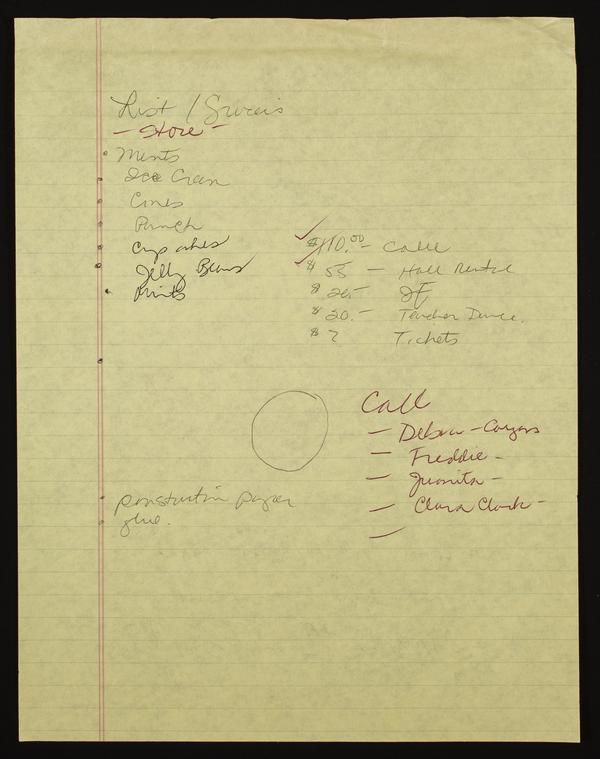 List /
- Store -
Mints
Ice Cream
Cones
Punch
Cup cakes
Jelly Beans
Mints
$110.00 - Cake
$55 - Hall Rental
$20.-
$20.- Teacher Dance.
$ ? Tickets
Call
- Debra -
- Freddie -
- Juanita -
- Clara Clark -
-
Construction paper
glue.